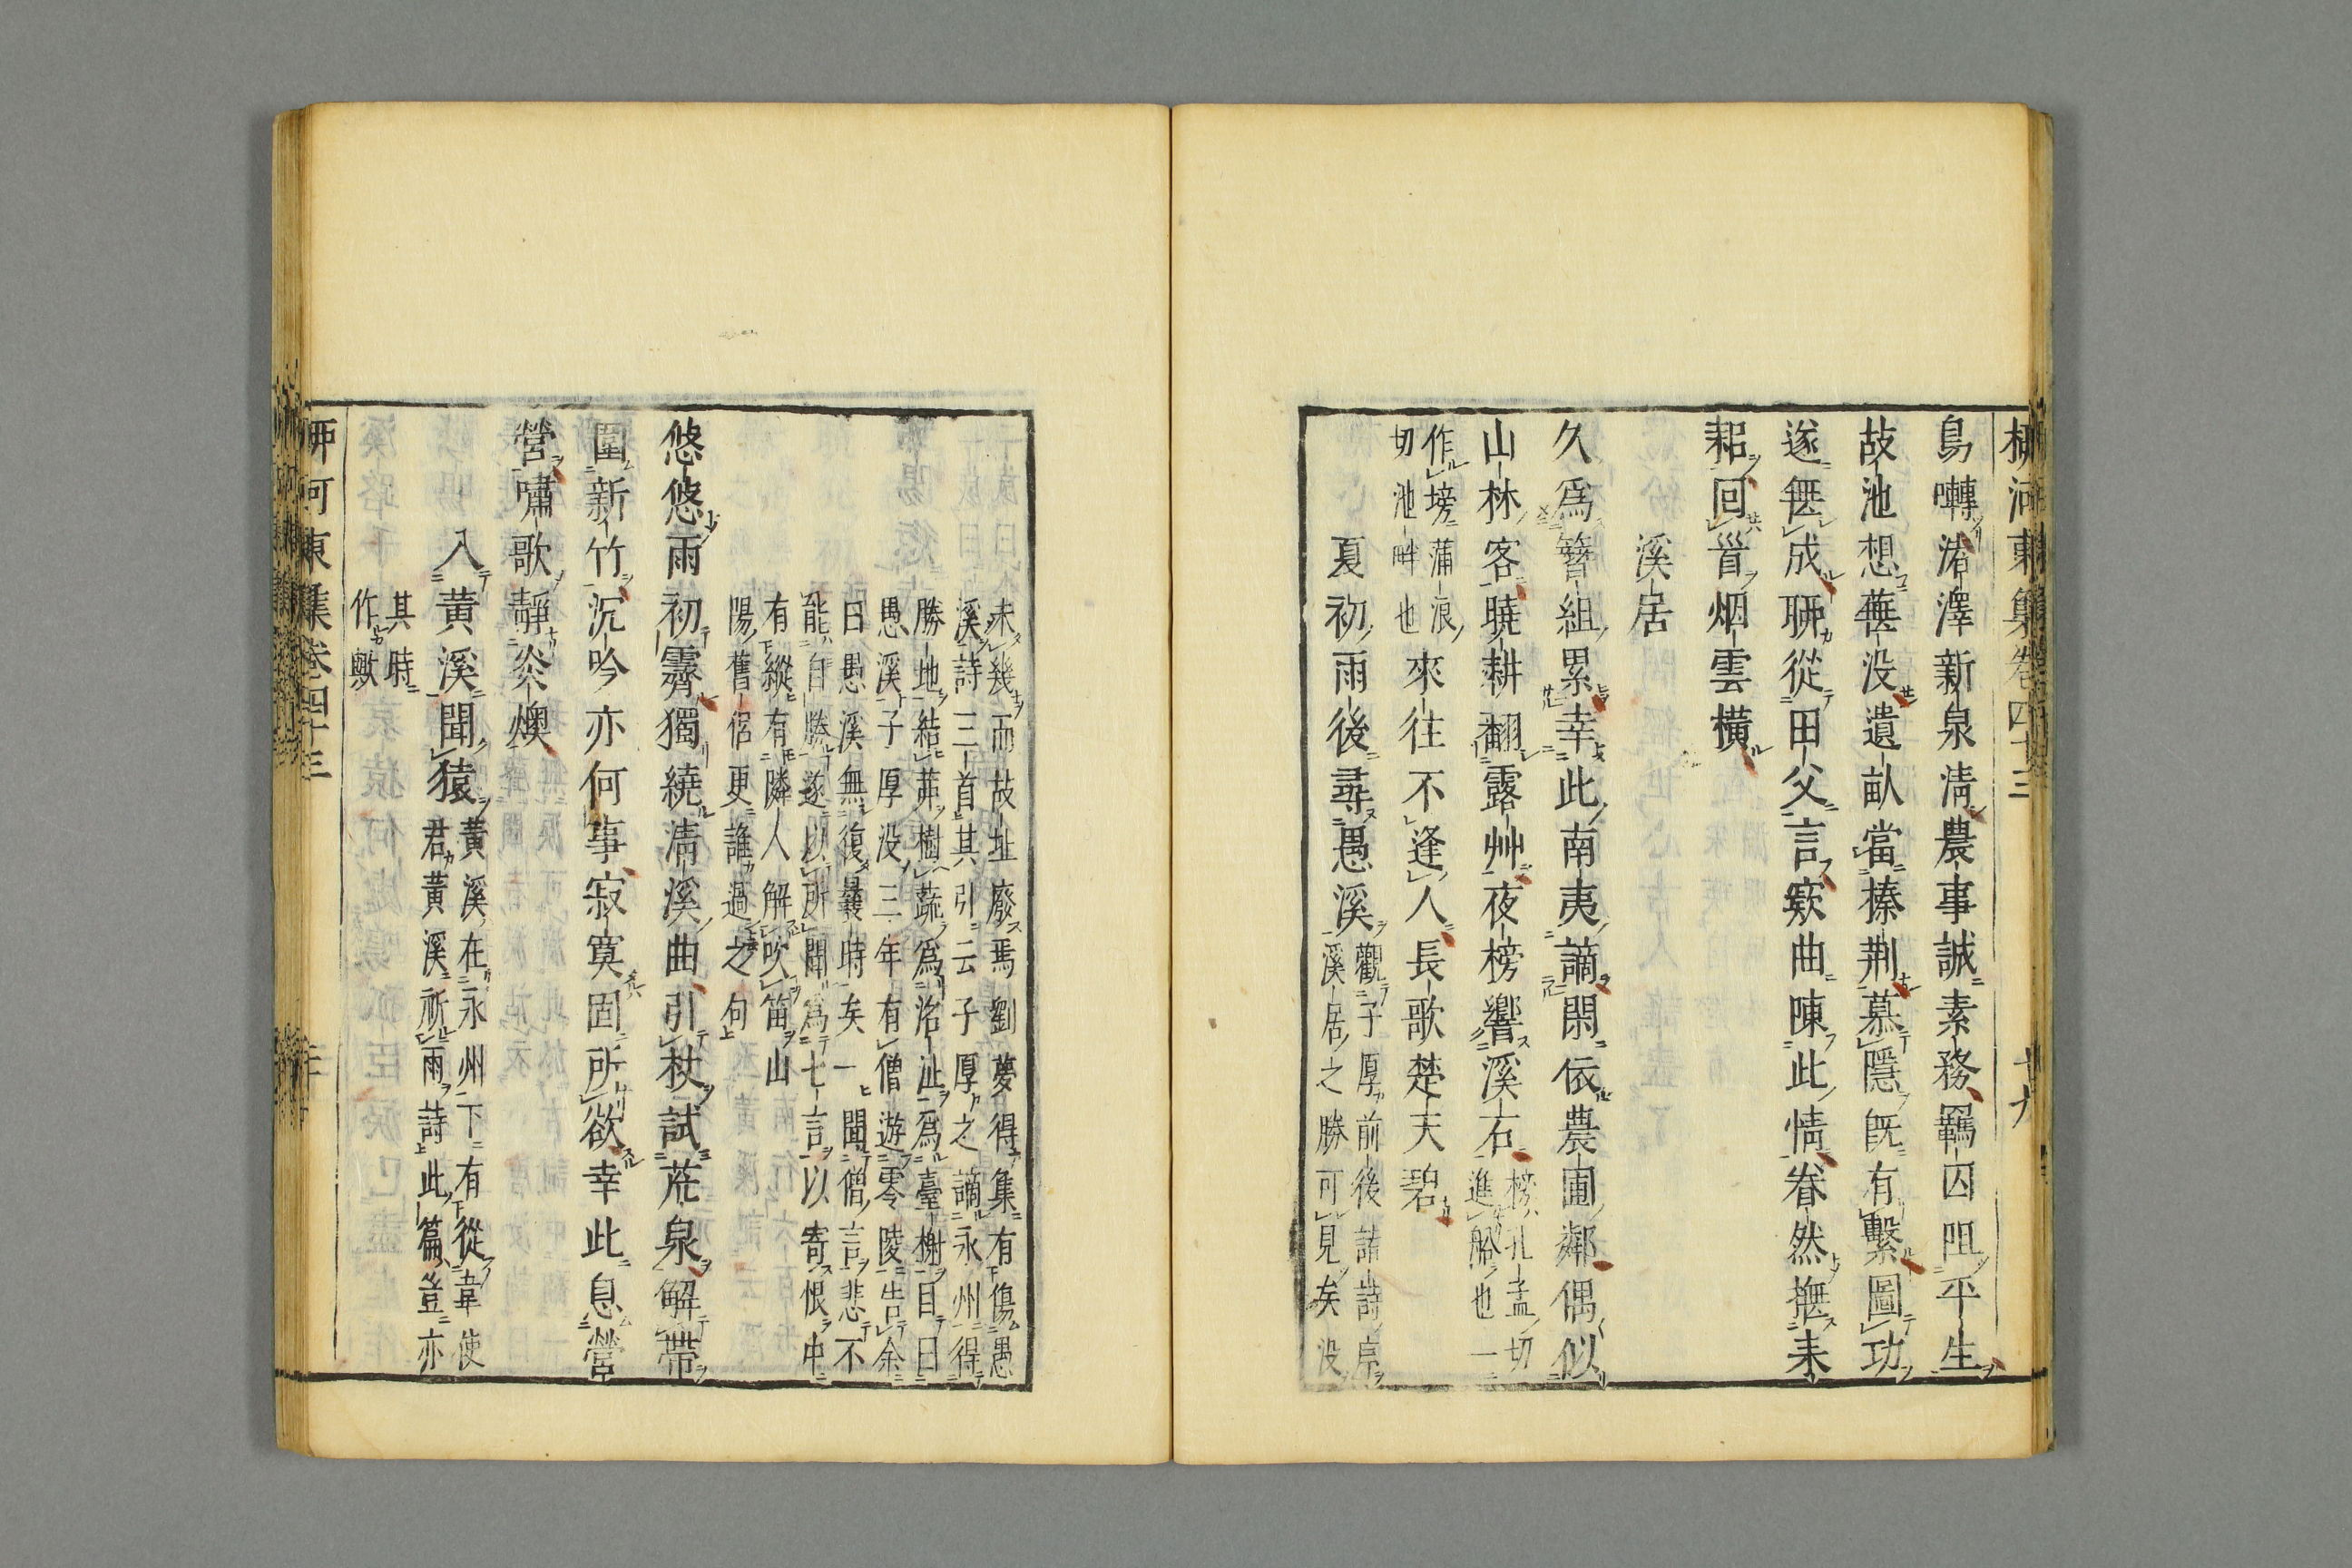 柳河東集卷四十三
十九
鳥囀渚澤新泉清農事誠素務羈囚阻平生
故池想蕪没遺畝當榛荆慕隱既有繫圖功
遂無成聊從田父言款曲陳此情眷然撫耒
耜回首烟雲橫
溪居
久爲簪組累幸此南夷謫閑依農圃鄰偶似
山林客曉耕翻露艸夜榜響溪石
榜孔孟切
進船也一
作塝蒲浪
切池畔也
來往不逢人長歌楚天碧
夏初雨後尋愚溪
觀子厚前後諸詩序
溪居之勝可見矣没
未幾而故址廢焉劉夢得集有傷愚
溪詩三首其引云子厚之謫永州得
勝地結茆樹蔬爲沼沚爲臺榭目曰
愚溪子厚没三年有僧遊零陵告余
曰愚溪無復曩時矣一聞僧言悲不
能自勝遂以所聞爲七言以寄恨中
有縱有隣人解吹笛山
陽舊侶更誰過之句
悠悠雨初霽獨繞清溪曲引杖試荒泉解帶
圍新竹沉吟亦何事寂寞固所欲幸此息營
營嘯歌靜炎燠
入黄溪聞猿
黄溪在永州下有從韋使
君黄溪祈雨詩此篇豈亦
其時
作歟
柳河東集卷四十三